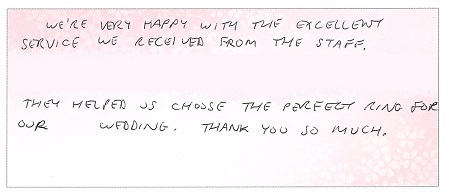 WE'RE VERY HAPPY WITH THE EXCELLENT
SERVICE WE RECEIVED FROM THE STAFF.
THEY HELPED US CHOOSE THE PERFECT RING FOR
OUR WEDDING. THANK YOU SO MUCH.